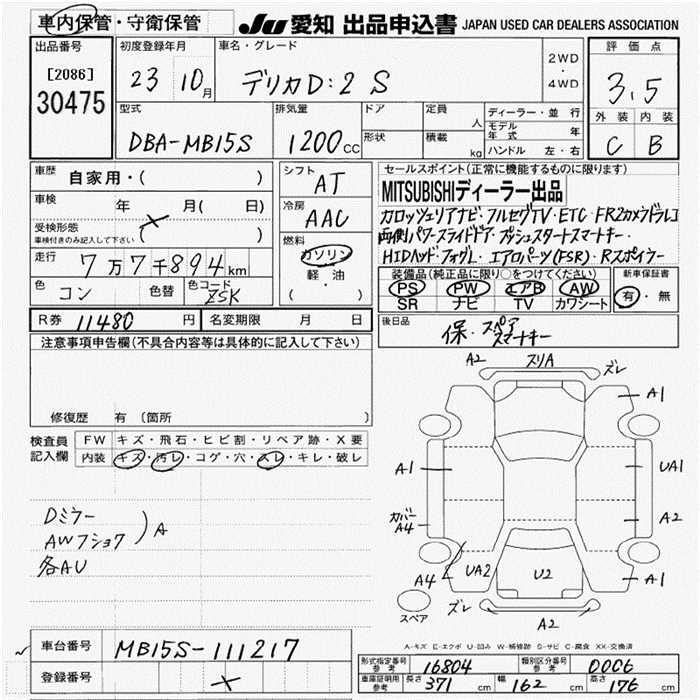 車内保管・守衛保管
JU 愛知 出品申込書 JAPAN USED CAR DEALERS ASSOCIATION
出品番号
[2086]
30475
初度登録年月
23 10月
車名・グレード
デリカD:2 S
2WD
・
4WD
評価点
3.5
外装 内装
C B
型式
DBA-MB15S
排気量
1200cc
ドア
形状
定員
人
積載
kg
ディーラー・並行
モデル年式 年
ハンドル 左・右
車歴
自家用・( )
車検 年 月( 日)
受検形態
車検付きのみ記入して下さい
( )
走行
7万7千894km
色 コン 色替 色コード ZSK
シフト
AT
冷房
AAC
燃料
ガソリン
軽油
( )
セールスポイント(正常に機能するものに限ります)
MITSUBISHIディーラー出品
カロッツェリアナビ・フルセグTV・ETC・FR2カメラドラレコ
両側パワースライドドア・プッシュスタートスマートキー・
HIDヘッド・フォグL・エアロパーツ(FSR)・Rスポイラー
装備品(純正品に限り○をつけてください)
PS PW エアB AW
SR ナビ TV カワシート
新車保証書
有・無
R券 11480円 名変期限 月 日
後日品
保・スペア
スマートキー
注意事項申告欄(不具合内容等は具体的に記入して下さい)
修復歴 有(箇所 )
検査員
記入欄
FW キズ・飛石・ヒビ割・リペア跡・X要
内装 キズ・汚レ・コゲ・穴・スレ・キレ・破レ
Dミラー
AWフショク
A
各AU
A2 スリA ズレ
A1
A1
UA1
カバー
A4
A2
A4 UA2 U2 A1
スペア
ズレ A2
A-キズ E-エクボ U-凹み W-補修跡 S-サビ C-腐食 XX-交換済
車台番号 MB15S-111217
登録番号
型式指定番号
参考
16804
類別区分番号
参考
0006
車庫証明用
参考
長さ 371cm 幅 162cm 高さ 176cm